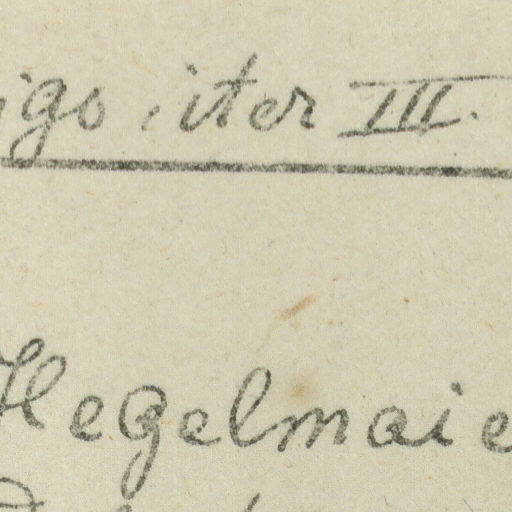 igo, iter III.
Hegelmaie